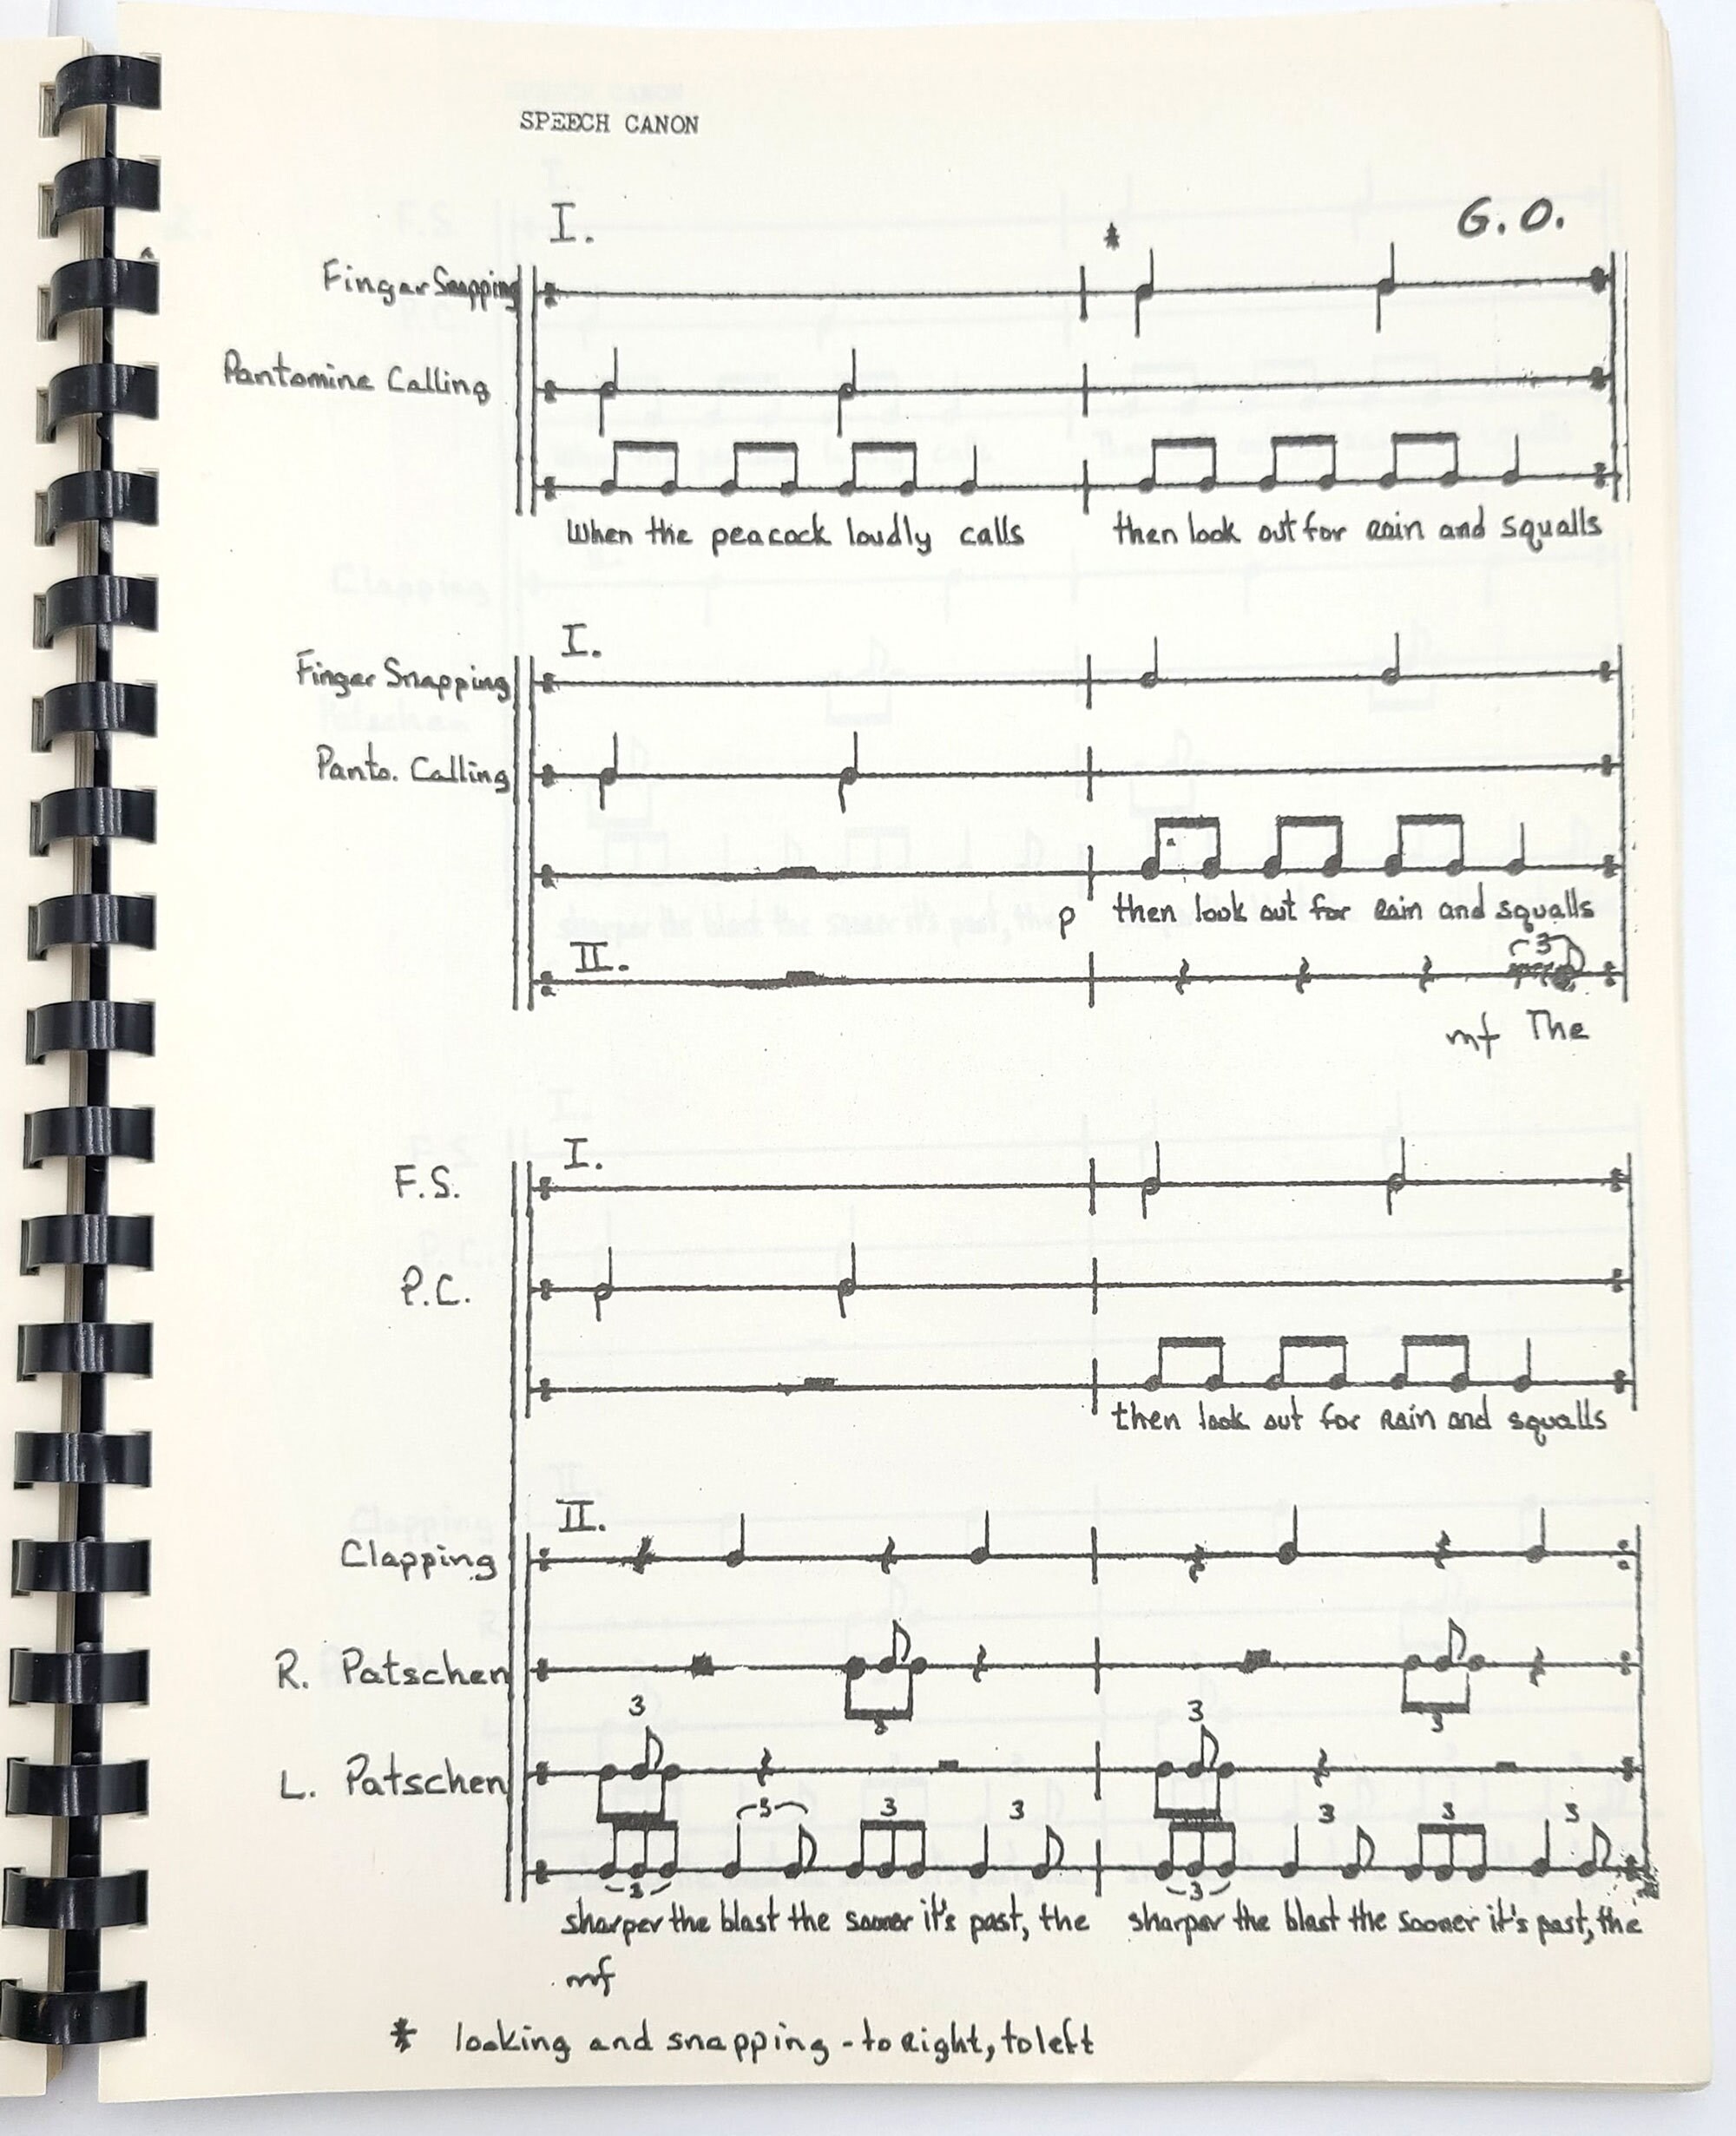 SPEECH CANON
I.
*
G.O.
Finger Snapping
Pantomine Calling
When the peacock loudly calls then look out for rain and squalls
I.
Finger Snapping
Panto. Calling
p then look out for rain and squalls
II.
3
mf The
I.
F.S.
P.C.
then look out for rain and squalls
II.
Clapping
R. Patschen
3 3
3 3
L. Patschen
3 3 3 3 3 3
3 3
sharper the blast the sooner it's past, the sharper the blast the sooner it's past, the
mf
* looking and snapping - to right, to left